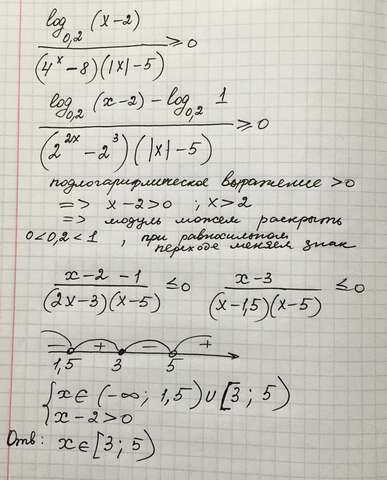 log₀,₂ (x-2) / (4ˣ-8)(|x|-5) ≥ 0
log₀,₂ (x-2) - log₀,₂ 1 / (2²ˣ-2³)(|x|-5) ≥ 0
подлогарифмическое выражение >0
=> x-2>0 ; x>2
=> модуль можем раскрыть
0<0,2<1 , при равносильном
переходе меняем знак
x-2-1 / (2x-3)(x-5) ≤ 0   x-3 / (x-1,5)(x-5) ≤ 0
- + - +
1,5 3 5
{ x ∈ (-∞; 1,5) ∪ [3; 5)
x-2>0
Отв: x ∈ [3; 5)